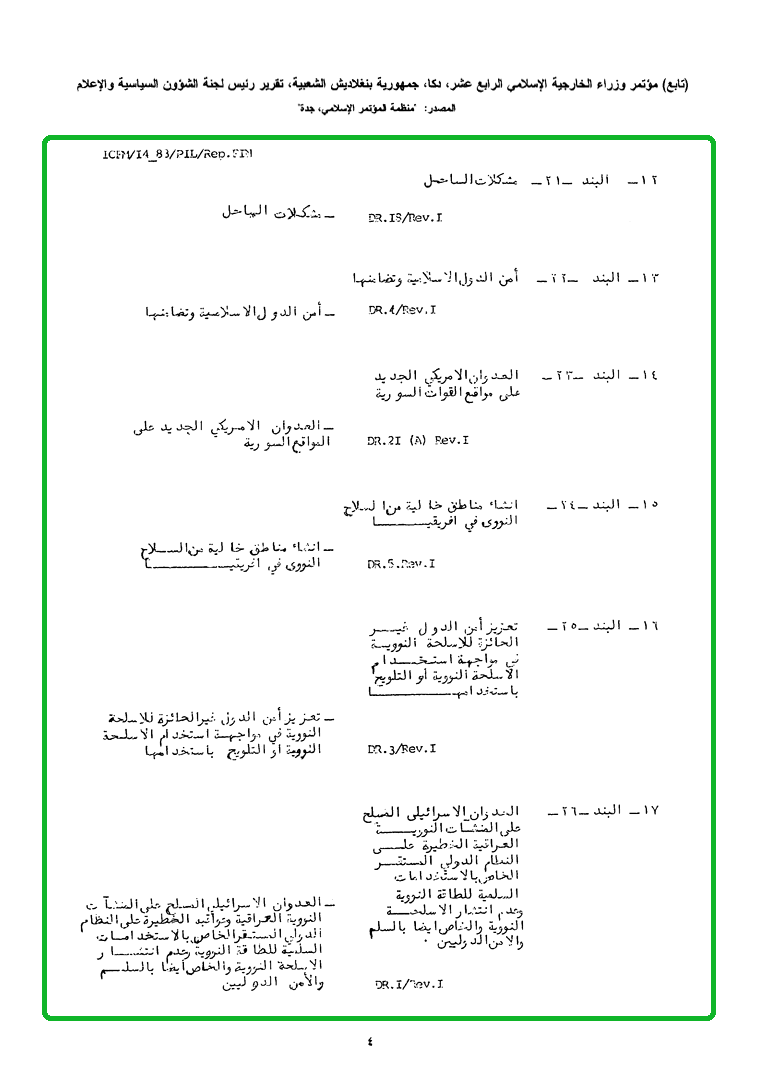 (تابع) مؤتمر وزراء الخارجية الإسلامي الرابع عشر، دكا، جمهورية بنغلاديش الشعبية، تقرير رئيس لجنة الشؤون السياسية والإعلام
المصدر: "منظمة المؤتمر الإسلامي، جدة"
ICFM/I4_83/PIL/Rep.FIN
١٢ – البند –٢١– مشكلات الساحل
DR.IS/Rev.I – مشكلات الساحل
١٣ – البند –٢٢– أمن الدول الاسلامية وتضامنها
DR.4/Rev.I – أمن الدول الاسلامية وتضامنها
١٤ – البند –٢٣– العدوان الامريكي الجديد
على مواقع القوات السورية
– العدوان الامريكي الجديد على
DR.2I (A) Rev.I المواقع السورية
١٥ – البند –٢٤– انشاء مناطق خالية من السلاح
النووى في افريقيــا
– انشاء مناطق خالية من الســلاح
DR.5.Rev.I النووى في افريقيــا
١٦ – البند –٢٥– تعزيز أمن الدول غيــر
الحائزة للاسلحة النوويــة
في مواجهة استخــدام
الاسلحة النووية أو التلويح
باستخدامهــا
– تعزيز أمن الدول غير الحائزة للاسلحة
النووية في مواجهة استخدام الاسلحة
DR.3/Rev.I النووية او التلويح باستخدامها
١٧ – البند –٢٦– العدوان الاسرائيلي المسلح
على المنشآت النوويــة
العراقية الخطيرة علــى
النظام الدولي المستقــر
الخاص بالاستخدامات
السلمية للطاقة النووية
وعدم انتشار الاسلحــة
النووية والخاص ايضا بالسلم
والامن الدوليين ٠
– العدوان الاسرائيلي المسلح على المنشآت
النووية العراقية وعواقبه الخطيرة على النظام
الدولي المستقر الخاص بالاستخدامــات
السلمية للطاقة النووية وعدم انتشــار
الاسلحة النووية والخاص أيضا بالسلــم
DR.I/Rev.I والأمن الدوليين
٤